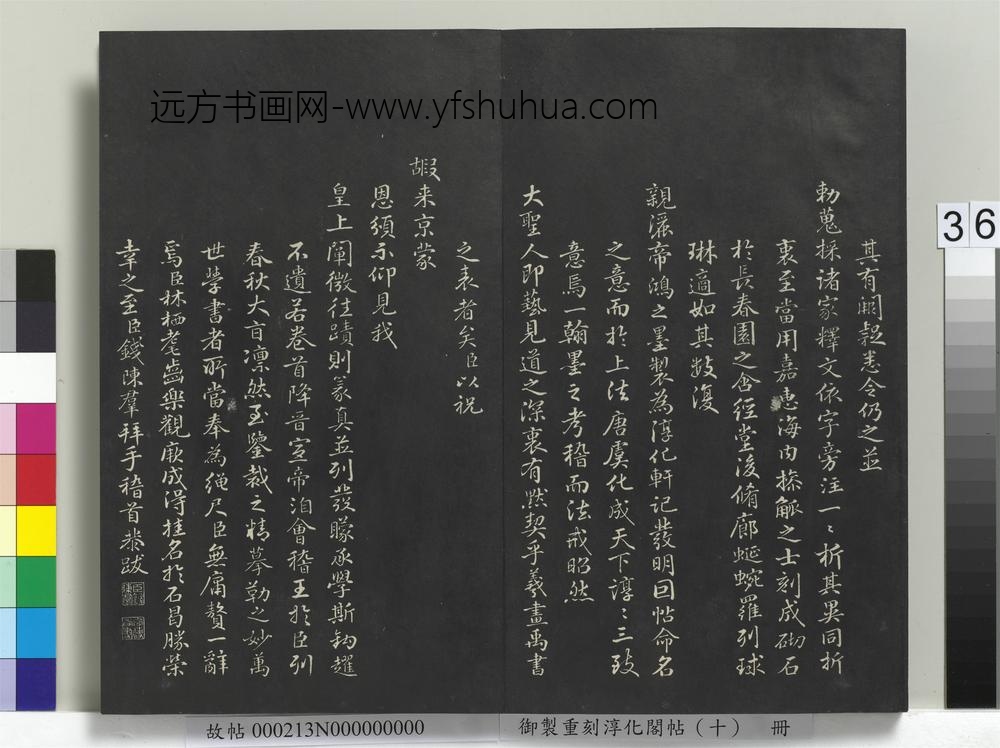 远方书画网-www.yfshuhua.com
其有闕疑悉令仍之並
勅蒐採诸家釋文依字旁注一〻析其異同折
衷至當用嘉惠海内操觚之士刻成砌石
於長春園之含經堂後脩廊蜿蜒羅列球
琳適如其數復
親灑宸鴻之墨製為淳化軒記發明回帖命名
之意而於上法唐虞化成天下諄〻三致
意焉一翰墨之考稽而法戒昭然
大聖人即藝見道之深衷有默契乎羲畫禹書
之表者矣臣以祝
嘏来京蒙
恩頒示仰見我
皇上闡徵往蹟則篆真並列發矇承學斯鉤耀
不遺若卷首降晉宣帝洎會稽王於臣列
春秋大旨凛然至鑒裁之精摹勒之妙萬
世學書者所當奉為绳尺臣無庸贅一辭
焉臣林栖耄齒樂觀厥成得挂名於石曷勝荣
幸之至臣錢陳羣拜手稽首恭跋
36
故帖 000213N000000000
御製重刻淳化閣帖（十） 冊